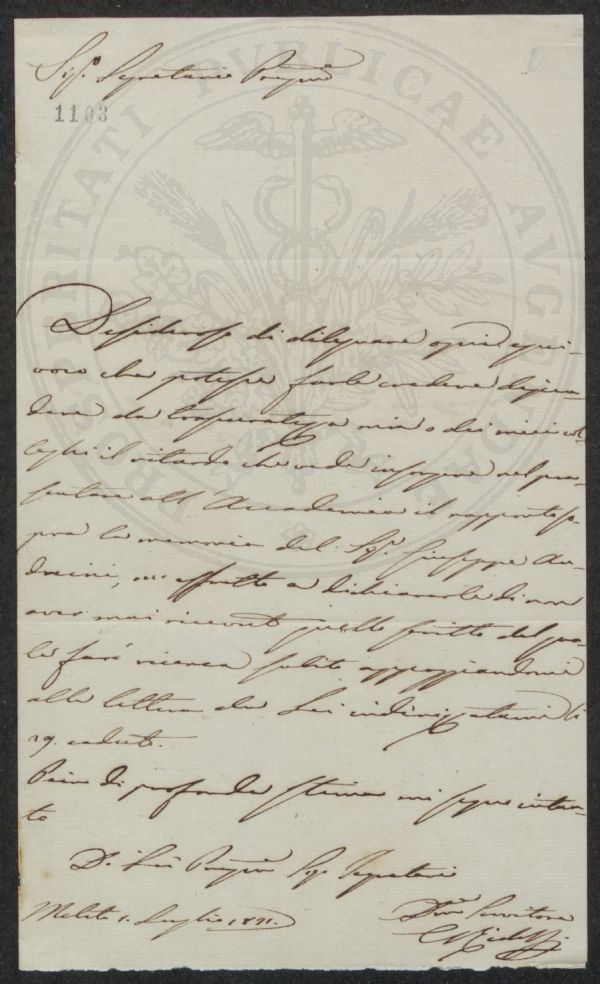 Sigr. Segretario Pregmo
1103
PROSPERITATI PUBLICAE AUGENDAE
Desideroso di dileguare ogni equi-
voco che potesse farle credere dipen-
dere da trascuratezza mia o dei miei col-
leghi il ritardo che vede insorgere nel pre-
sentare all'Accademia il rapporto so-
pra la memoria del Sigr. Giuseppe
, mi affretto a dichiararle di non
aver mai ricevuto quello scritto del qua-
le farò ricerca subito appoggiandomi
alla lettera da Lei indirizzatami li
29. caduto.
Pieno di profonda stima mi segno intan-
to
Di Lei Pregmo Sigr Segretario
1. Luglio
Devmo Servitore